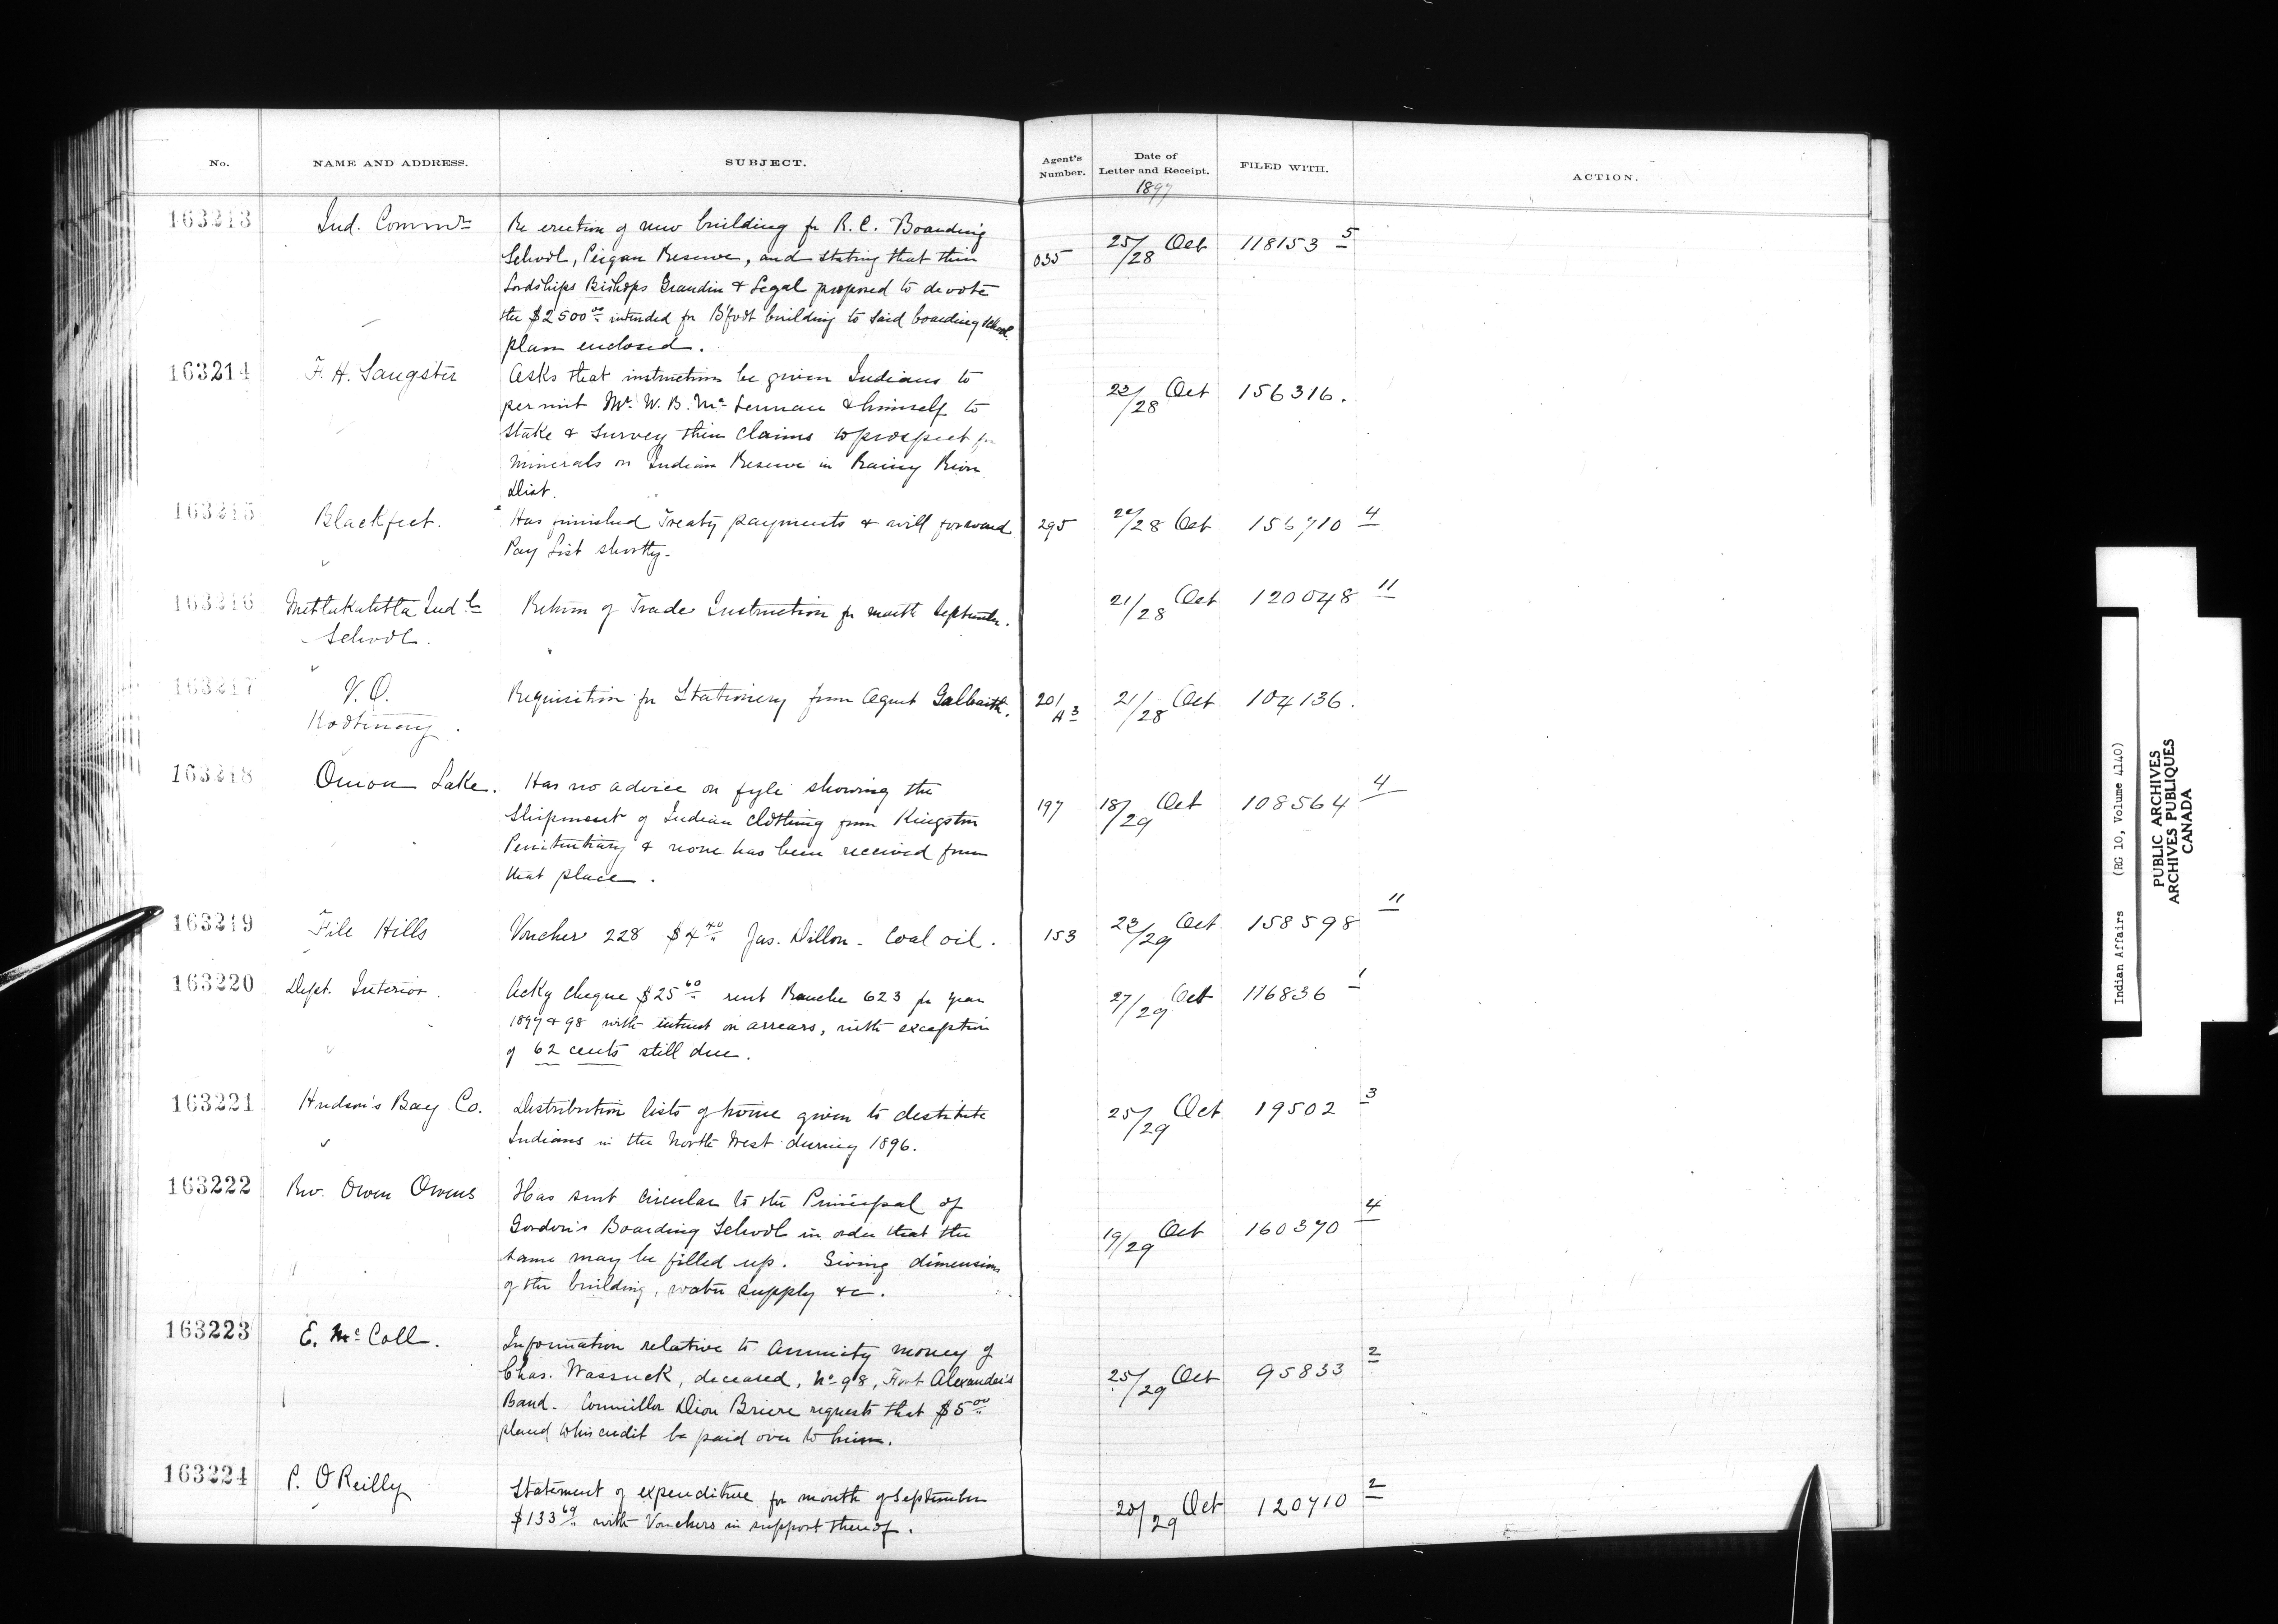 No. NAME AND ADDRESS. SUBJECT. Agent's Number. Date of Letter and Receipt. 1897 FILED WITH. ACTION.
163213 Ind. Commr Re erection of new building for R.C. Boarding
School, Peigan Reserve, and stating that their 035 25/28 Oct 118153 5
Lordships Bishops Grandin & Legal proposed to devote
the $2500.00 intended for B'foot building to said boarding school
plan enclosed.
163214 F. H. Sangster Asks that instructions be given Indians to
permit Mr. W. B. McLennan & himself to 23/28 Oct 156316.
stake & survey their claims to prospect for
minerals on Indian Reserve in Rainy River
Dist.
163215 Blackfeet. Has finished Treaty payments & will forward 295 28 Oct 156710 4
Pay List shortly.
163216 Metlakahtla Indl Return of Trade Instruction for month September. 21/28 Oct 120048 11
School.
163217 V.O. Requisition for Stationery from Agent Galbraith. 201/A3 21/28 Oct 104136.
Kootenay.
163218 Onion Lake. Has no advice on fyle showing the
shipment of Indian clothing from Kingston 197 18/29 Oct 108564 4
Penitentiary & none has been received from
that place.
163219 File Hills Voucher 228 $4.40 Jas. Dillon - Coal oil. 153 23/29 Oct 158598 11
163220 Dept. Interior. Ackg cheque $25.60 rent Ranche 623 for year 27/29 Oct 116836 1
1897 & 98 with interest on arrears, with exception
of 62 cents still due.
163221 Hudson's Bay Co. Distribution lists of twine given to destitute 25/29 Oct 19502 3
Indians in the North West during 1896.
163222 Rev. Owen Owens Has sent circular to the Principal of
Gordon's Boarding School in order that the 19/29 Oct 160370 4
same may be filled up. Giving dimensions
of the building, water supply &c.
163223 E. McColl. Information relative to annuity money of
Chas. Wassuck, deceased, No 98, Fort Alexander's 25/29 Oct 95833 2
Band. Councillor Dion Briere requests that $5.00
placed to his credit be paid over to him.
163224 P. O'Reilly Statement of expenditure for month of September 20/29 Oct 120710 2
$133.69 with Vouchers in support thereof.
Indian Affairs (RG 10, Volume 4140)
PUBLIC ARCHIVES
ARCHIVES PUBLIQUES
CANADA